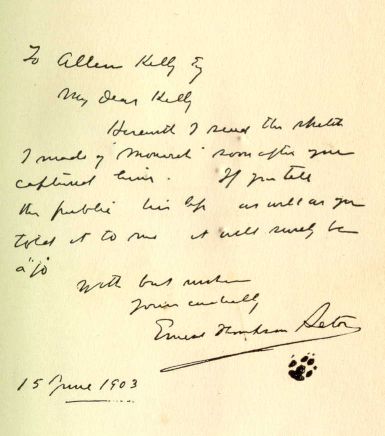 To Allen Kelly Esq
My dear Kelly
Herewith I send the sketch
I made of "Monarch" soon after you
captured him. If you tell
the public his life as well as you
told it to me it will surely be
a "go
With best wishes
Yours cordially
Ernest Thompson Seton
15 June 1903